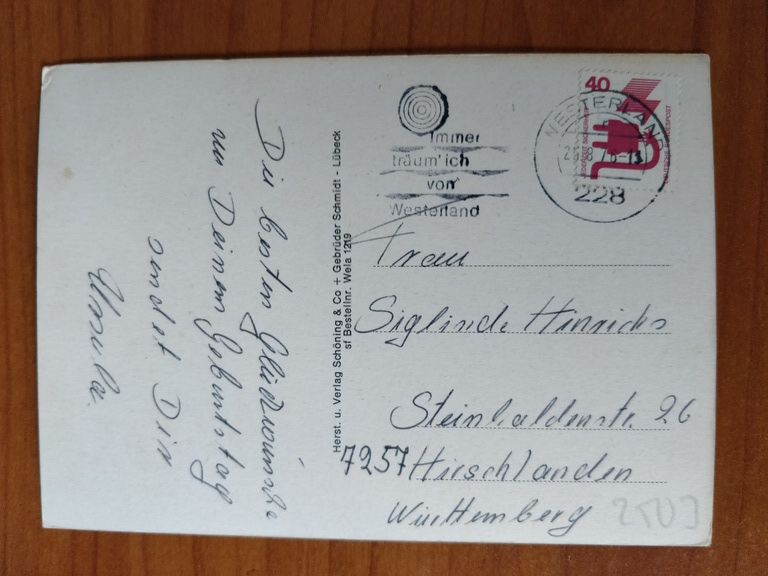 Die besten Glückwünsche
zu Deinem Geburtstag
sendet Dir
Ursula.
Herst. u. Verlag Schöning & Co + Gebrüder Schmidt - Lübeck
sf Bestellnr. Wela 1219
Immer
träum' ich
von
Westerland
40
DEUTSCHE BUNDESPOST
WESTERLAND
228
Frau
Siglinde Hinrichs
Steinhaldenstr. 26
7257 Hirschlanden
Württemberg